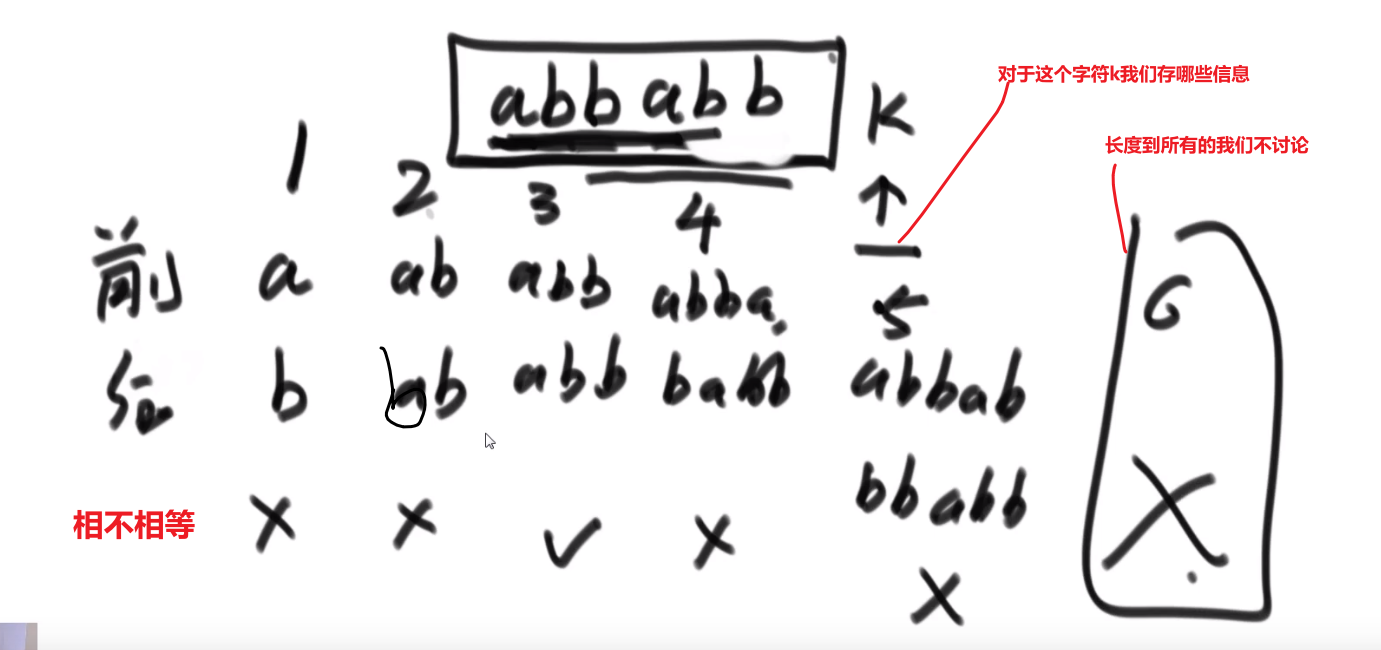 abbabb k
对于这个字符k我们存哪些信息
长度到所有的我们不讨论
1 2 3 4 5 6
前 a ab abb abba abbab
后 b ab abb babb bbabb
相不相等 × × ✓ × × ×